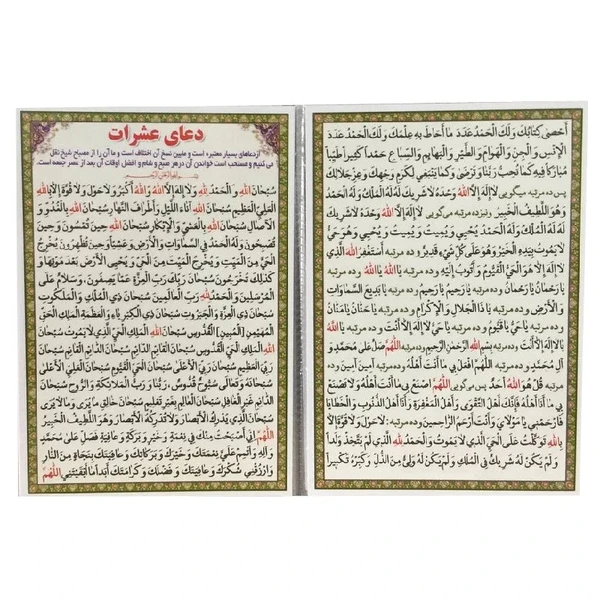 دعای عشرات
ازدعاهای بسیار معتبره است و مابین نسخ آن اختلاف است و ما آن را از مصباح شیخ نقل
می کنیم و مستحب است خواندن آن در هر صبح و شام و افضل اوقات آن بعد از عصر جمعه است.
سُبْحَانَ اللَّهِ وَ الْحَمْدُ لِلَّهِ وَ لَا إِلَهَ إِلَّا اللَّهُ وَ اللَّهُ أَكْبَرُ وَ لَا حَوْلَ وَ لَا قُوَّةَ إِلَّا بِاللَّهِ
الْعَلِيِّ الْعَظِيمِ سُبْحَانَ اللَّهِ آنَاءَ اللَّيْلِ وَ أَطْرَافَ النَّهَارِ سُبْحَانَ اللَّهِ بِالْغُدُوِّ وَ
الْآصَالِ سُبْحَانَ اللَّهِ بِالْعَشِيِّ وَ الْإِبْكَارِ سُبْحَانَ اللَّهِ حِينَ تُمْسُونَ وَ حِينَ
تُصْبِحُونَ وَ لَهُ الْحَمْدُ فِي السَّمَاوَاتِ وَ الْأَرْضِ وَ عَشِيّاً وَ حِينَ تُظْهِرُونَ يُخْرِجُ
الْحَيَّ مِنَ الْمَيِّتِ وَ يُخْرِجُ الْمَيِّتَ مِنَ الْحَيِّ وَ يُحْيِي الْأَرْضَ بَعْدَ مَوْتِهَا وَ
كَذَلِكَ تُخْرَجُونَ سُبْحَانَ رَبِّكَ رَبِّ الْعِزَّةِ عَمَّا يَصِفُونَ، وَ سَلَامٌ عَلَى
الْمُرْسَلِينَ وَ الْحَمْدُ لِلَّهِ رَبِّ الْعَالَمِينَ سُبْحَانَ ذِي الْمُلْكِ وَ الْمَلَكُوتِ
سُبْحَانَ ذِي الْعِزَّةِ وَ الْجَبَرُوتِ سُبْحَانَ ذِي الْكِبْرِيَاءِ وَ الْعَظَمَةِ الْمَلِكِ الْحَقِّ
الْمُهَيْمِنِ [الْمُبِينِ] الْقُدُّوسِ سُبْحَانَ اللَّهِ الْمَلِكِ الْحَيِّ الَّذِي لَا يَمُوتُ سُبْحَانَ
اللَّهِ الْمَلِكِ الْحَيِّ الْقُدُّوسِ سُبْحَانَ الْقَائِمِ الدَّائِمِ سُبْحَانَ الدَّائِمِ الْقَائِمِ سُبْحَانَ
رَبِّيَ الْعَظِيمِ سُبْحَانَ رَبِّيَ الْأَعْلَى سُبْحَانَ الْحَيِّ الْقَيُّومِ سُبْحَانَ الْعَلِيِّ الْأَعْلَى
سُبْحَانَهُ وَ تَعَالَى سُبُّوحٌ قُدُّوسٌ، رَبُّنَا وَ رَبُّ الْمَلَائِكَةِ وَ الرُّوحِ سُبْحَانَ
الدَّائِمِ غَيْرِ الْغَافِلِ سُبْحَانَ الْعَالِمِ بِغَيْرِ تَعْلِيمٍ سُبْحَانَ خَالِقِ مَا يُرَى وَ مَا لَا يُرَى
سُبْحَانَ الَّذِي يُدْرِكُ الْأَبْصَارَ وَ لَا تُدْرِكُهُ الْأَبْصَارُ وَ هُوَ اللَّطِيفُ الْخَبِيرُ
اللَّهُمَّ إِنِّي أَصْبَحْتُ مِنْكَ فِي نِعْمَةٍ وَ خَيْرٍ وَ بَرَكَةٍ وَ عَافِيَةٍ فَصَلِّ عَلَى مُحَمَّدٍ
وَ آلِهِ وَ أَتْمِمْ عَلَيَّ نِعْمَتَكَ وَ خَيْرَكَ وَ بَرَكَاتِكَ وَ عَافِيَتَكَ بِنَجَاةٍ مِنَ النَّارِ
وَ ارْزُقْنِي شُكْرَكَ وَ عَافِيَتَكَ وَ فَضْلَكَ وَ كَرَامَتَكَ أَبَداً مَا أَبْقَيْتَنِي اللَّهُمَّ
أَحْصَى كِتَابُكَ وَ لَكَ الْحَمْدُ عَدَدَ مَا أَحَاطَ بِهِ عِلْمُكَ وَ لَكَ الْحَمْدُ عَدَدَ
الْإِنْسِ وَ الْجِنِّ وَ الْهَوَامِّ وَ الطَّيْرِ وَ الْبَهَائِمِ وَ السِّبَاعِ حَمْداً كَثِيراً طَيِّباً
مُبَارَكاً فِيهِ كَمَا تُحِبُّ رَبَّنَا وَ تَرْضَى وَ كَمَا يَنْبَغِي لِكَرَمِ وَجْهِكَ وَ عِزِّ جَلَالِكَ
پس ده مرتبه می گویی لَا إِلَهَ إِلَّا اللَّهُ وَحْدَهُ لَا شَرِيكَ لَهُ لَهُ الْمُلْكُ وَ لَهُ الْحَمْدُ
وَ هُوَ اللَّطِيفُ الْخَبِيرُ ونیز ده مرتبه می گویی لَا إِلَهَ إِلَّا اللَّهُ وَحْدَهُ لَا شَرِيكَ
لَهُ لَهُ الْمُلْكُ وَ لَهُ الْحَمْدُ يُحْيِي وَ يُمِيتُ وَ يُمِيتُ وَ يُحْيِي وَ هُوَ حَيٌّ
لَا يَمُوتُ بِيَدِهِ الْخَيْرُ وَ هُوَ عَلَى كُلِّ شَيْءٍ قَدِيرٌ و ده مرتبه أَسْتَغْفِرُ اللَّهَ الَّذِي
لَا إِلَهَ إِلَّا هُوَ الْحَيُّ الْقَيُّومُ وَ أَتُوبُ إِلَيْهِ و ده مرتبه يَا اللَّهُ يَا اللَّهُ و ده مرتبه
يَا رَحْمَانُ يَا رَحْمَانُ و ده مرتبه يَا رَحِيمُ يَا رَحِيمُ و ده مرتبه يَا بَدِيعَ السَّمَاوَاتِ
وَ الْأَرْضِ و ده مرتبه يَا ذَا الْجَلَالِ وَ الْإِكْرَامِ و ده مرتبه يَا حَنَّانُ يَا مَنَّانُ
و ده مرتبه يَا حَيُّ يَا قَيُّومُ و ده مرتبه يَا حَيُّ لَا إِلَهَ إِلَّا أَنْتَ و ده مرتبه يَا اللَّهُ
يَا لَا إِلَهَ إِلَّا أَنْتَ و ده مرتبه بِسْمِ اللَّهِ الرَّحْمَنِ الرَّحِيمِ و ده مرتبه اللَّهُمَّ صَلِّ عَلَى مُحَمَّدٍ وَ
آلِ مُحَمَّدٍ و ده مرتبه اللَّهُمَّ افْعَلْ بِي مَا أَنْتَ أَهْلُهُ و ده مرتبه آمِينَ آمِينَ و ده
مرتبه قُلْ هُوَ اللَّهُ أَحَدٌ پس می گویی اللَّهُمَّ اصْنَعْ بِي مَا أَنْتَ أَهْلُهُ وَ لَا تَصْنَعْ
بِي مَا أَنَا أَهْلُهُ فَإِنَّكَ أَهْلُ التَّقْوَى وَ أَهْلُ الْمَغْفِرَةِ وَ أَنَا أَهْلُ الذُّنُوبِ وَ الْخَطَايَا
فَارْحَمْنِي يَا مَوْلَايَ وَ أَنْتَ أَرْحَمُ الرَّاحِمِينَ و ده مرتبه: لَا حَوْلَ وَ لَا قُوَّةَ إِلَّا
بِاللَّهِ تَوَكَّلْتُ عَلَى الْحَيِّ الَّذِي لَا يَمُوتُ وَ الْحَمْدُ لِلَّهِ الَّذِي لَمْ يَتَّخِذْ وَلَداً
وَ لَمْ يَكُنْ لَهُ شَرِيكٌ فِي الْمُلْكِ وَ لَمْ يَكُنْ لَهُ وَلِيٌّ مِنَ الذُّلِّ وَ كَبِّرْهُ تَكْبِيراً